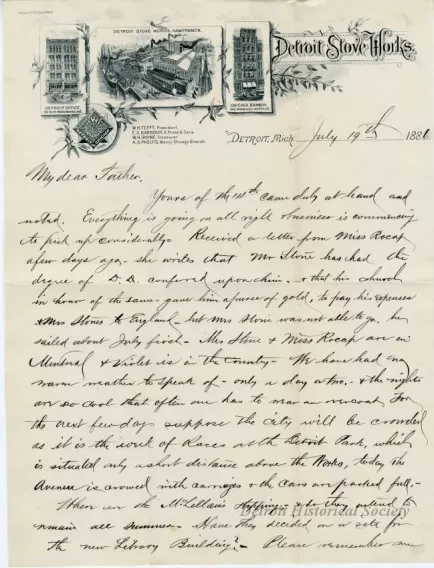 Detroit Stove Works.
DETROIT STOVE WORKS, HAMTRAMCK.
DETROIT OFFICE.
CHICAGO BRANCH
W.H. TEFFT, President.
W.H. IRVINE, Treasurer
A.G. PHELPS, Man'gr Chicago Branch
DETROIT, Mich. July 19th 188
My dear Father.
Yours of the 14th came duly at hand and
noted. Everything is going on all right & business is commencing
to pick up considerably. Received a letter from Miss Rocap
a few days ago - she writes that Mr Stone has had the
degree of D.D. conferred upon him. & that his church
in honor of the same gave him a purse of gold, to pay his expenses
& Mrs Stones to England - but Mrs Stone was not able to go. he
sailed about July first - Mrs Stone & Miss Rocap are in
Montreal & Violet is in the Country - We have had no
warm weather to speak of - only a day or two. & the nights
are so cool that often one has to wear an overcoat. For
the next few days suppose the City will be crowded
as it is the week of Races at the Detroit Park, which
is situated only a short distance above the Works, today the
Avenue is crowded with carriages & the cars are packed full. -
Where are the McLellans stopping - & do they intend to
remain all summer. Have they decided on a site for
the new Library Building? - Please remember me
Detroit Historical Society